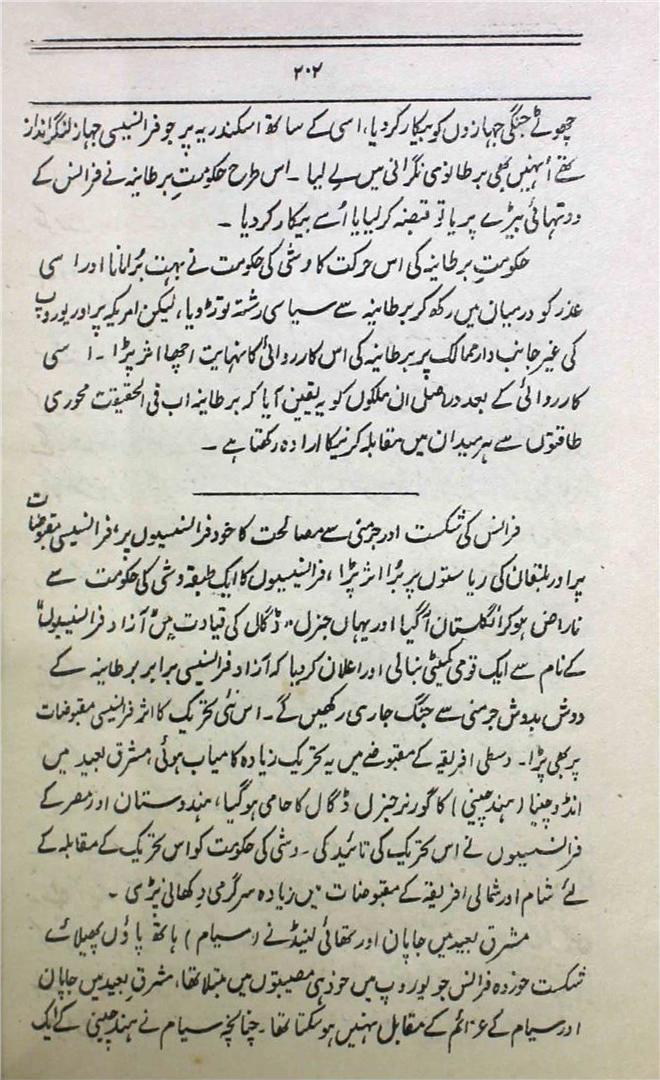 ۲۰۲
چھوٹے جنگی جہازوں کو بیکار کر دیا، اسی کے ساتھ اسکندریہ پر جو فرانسیسی جہاز لنگر انداز
تھے اُنہیں بھی برطانوی نگرانی میں لے لیا۔ اس طرح حکومتِ برطانیہ نے فرانس کے
دو تہائی بیڑے پر یا تو قبضہ کر لیا یا اُسے بیکار کر دیا ۔
حکومتِ برطانیہ کی اس حرکت کا وشی کی حکومت نے بہت بُرا مانا اور اسی
عذر کو درمیان میں رکھ کر برطانیہ سے سیاسی رشتہ توڑ دیا، لیکن امریکہ پر اور یوروپ
کی غیر جانب دار ممالک پر برطانیہ کی اس کارروائی کا نہایت اچھا اثر پڑا ۔ اسی
کارروائی کے بعد دراصل ان ملکوں کو یہ یقین آیا کہ برطانیہ اب فی الحقیقت محوری
طاقتوں سے ہر میدان میں مقابلہ کرنیکا ارادہ رکھتا ہے ۔
فرانس کی شکست اور جرمنی سے مصالحت کا خود فرانسیسوں پر، فرانسیسی مقبوضات
پر اور بلقان کی ریاستوں پر بُرا اثر پڑا، فرانسیسیوں کا ایک طبقہ وشی کی حکومت سے
ناراض ہو کر انگلستان آگیا اور یہاں جنرل ڈگال کی قیادت میں "آزاد فرانسیسوں"
کے نام سے ایک قومی کمیٹی بنالی اور اعلان کر دیا کہ آزاد فرانسیسی برابر برطانیہ کے
دوش بدوش جرمنی سے جنگ جاری رکھیں گے۔ اس نئی تحریک کا اثر فرانسیسی مقبوضات
پر بھی پڑا۔ وسطی افریقہ کے مقبوضے میں یہ تحریک زیادہ کامیاب ہوئی، مشرق بعید میں
انڈوچینا (ہند چینی) کا گورنر جنرل ڈگال کا حامی ہوگیا، ہندوستان اور مصر کے
فرانسیسوں نے اس تحریک کی تائید کی۔ وشی کی حکومت کو اس تحریک کے مقابلہ کے
لئے شام اور شمالی افریقہ کے مقبوضات میں زیادہ سرگرمی دکھانی پڑی ۔
مشرق بعید میں جاپان اور تھائی لینڈ نے (سیام) ہاتھ پاؤں پھیلائے
شکست خوردہ فرانس جو یوروپ میں خود ہی مصیبتوں میں مبتلا تھا، مشرق بعید میں جاپان
اور سیام کے عزائم کے مقابل نہیں ہو سکتا تھا۔ چنانچہ سیام نے ہند چینی کے ایک